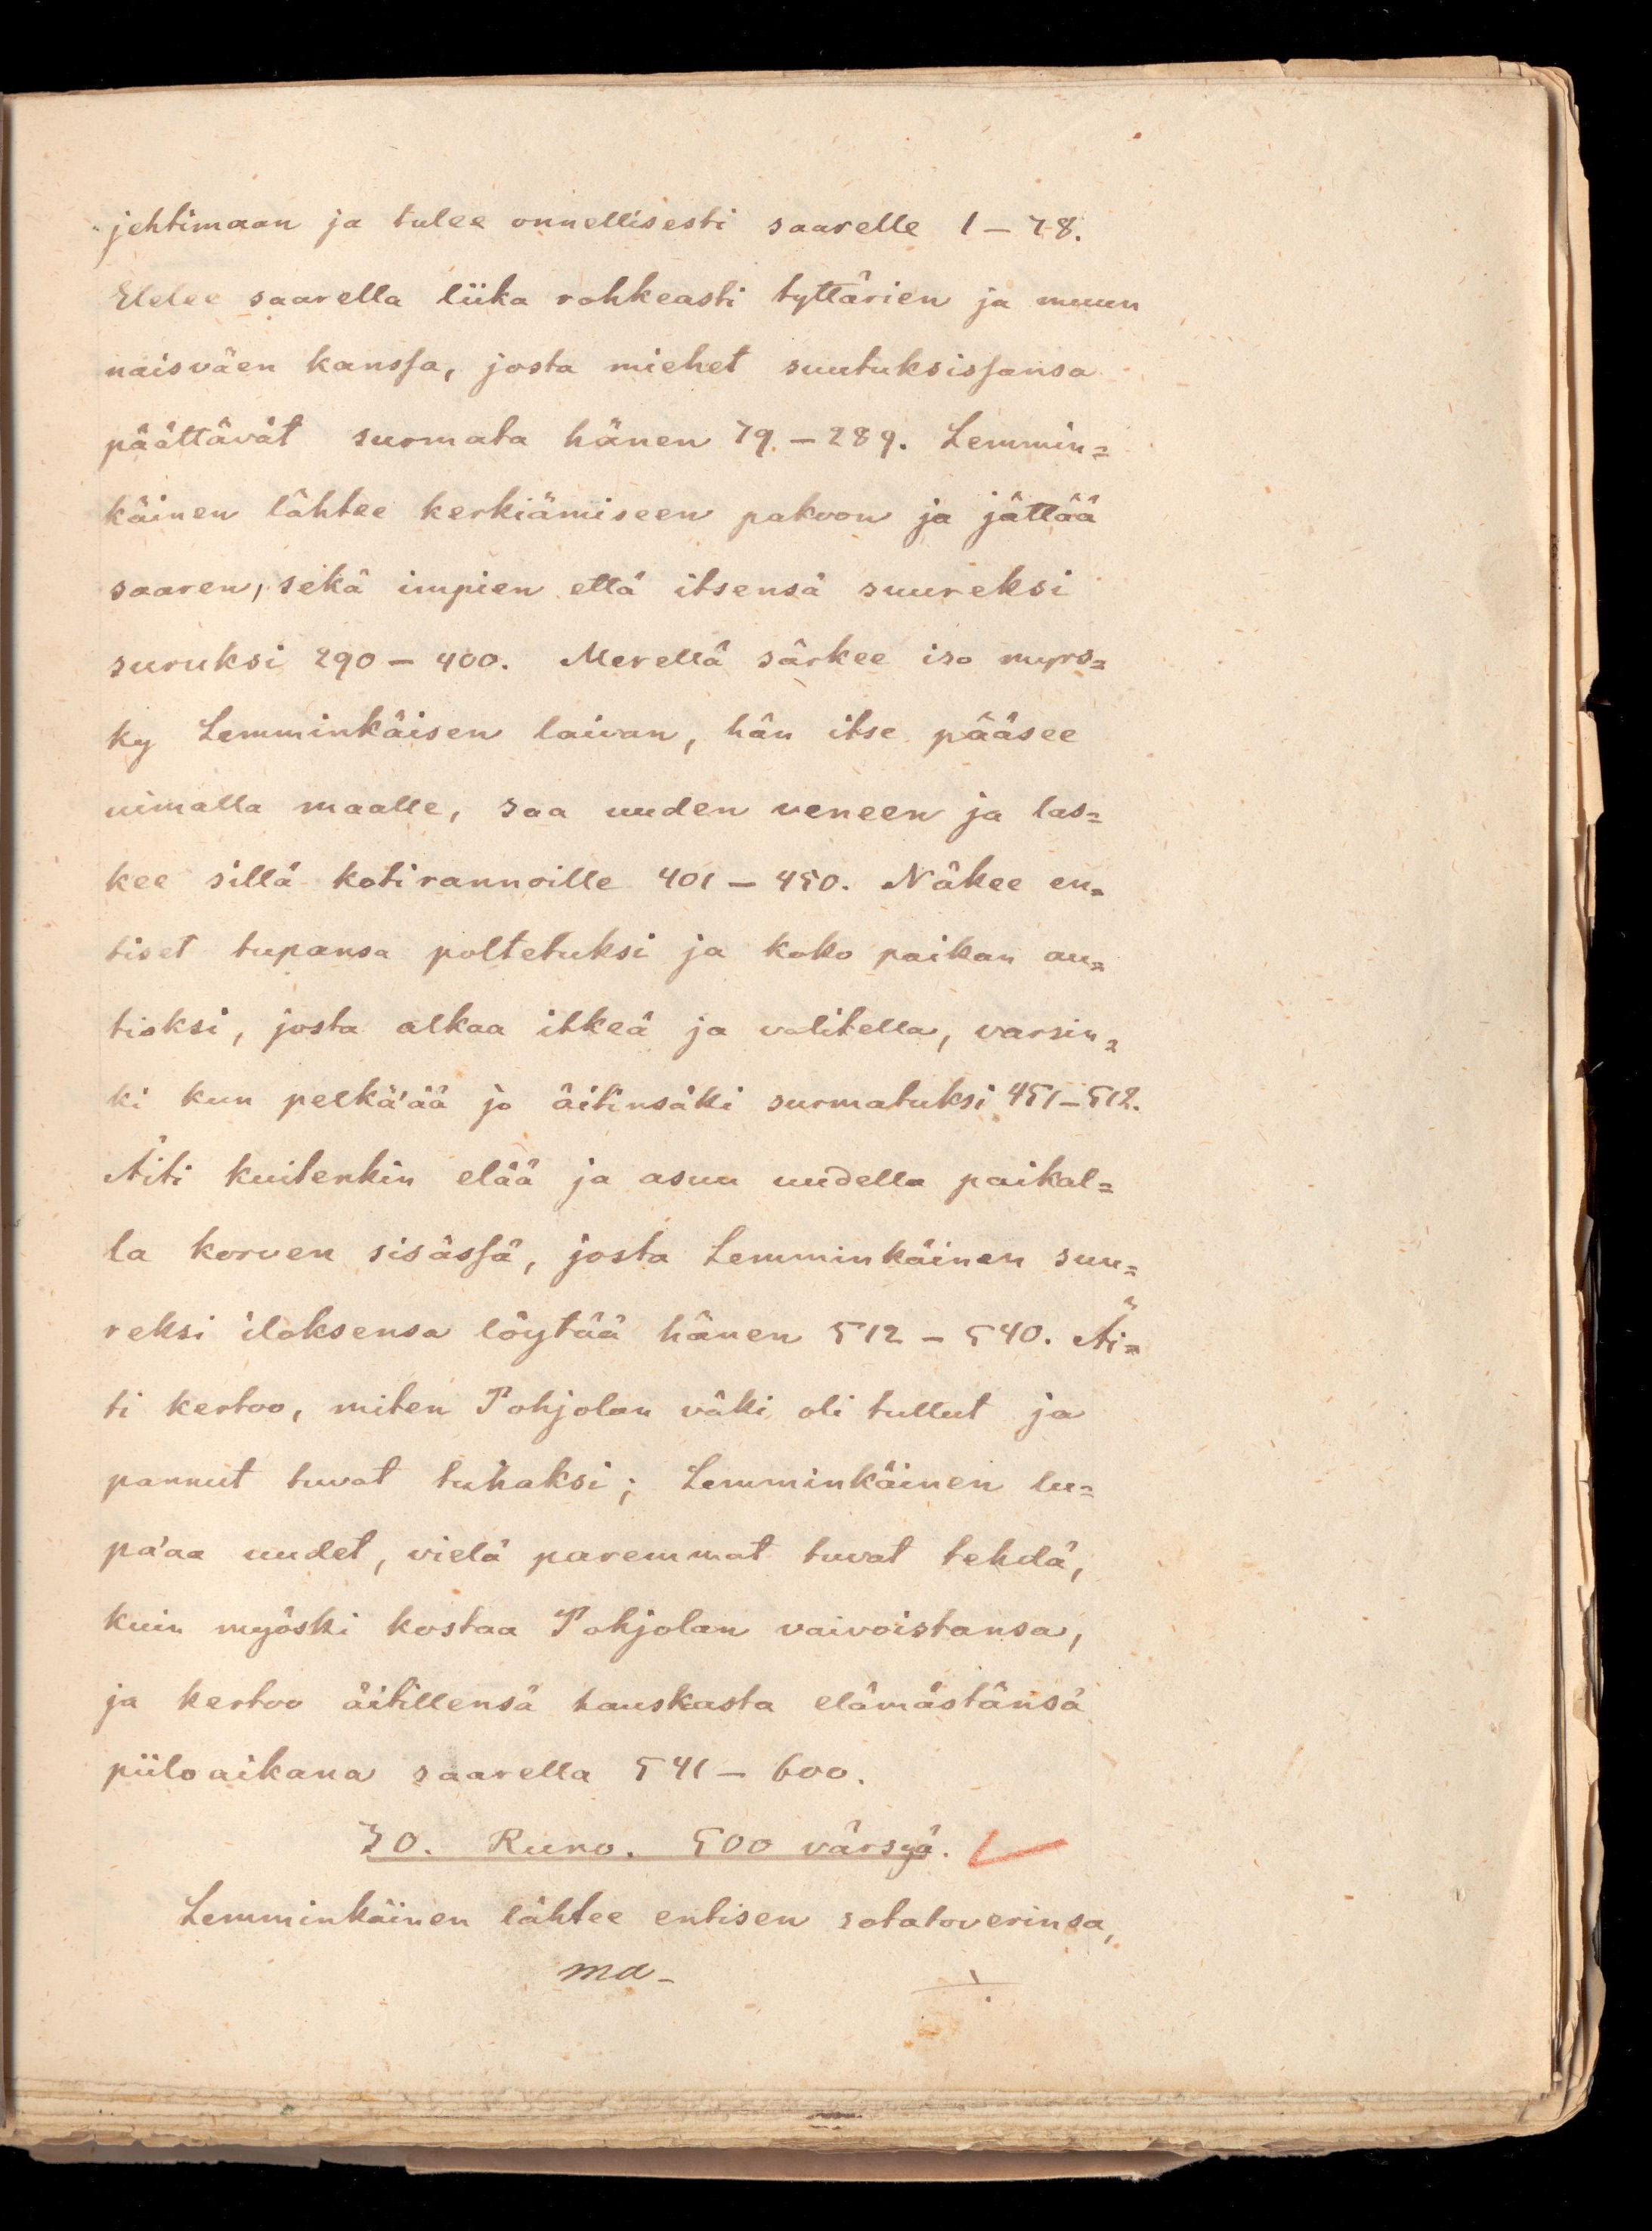 jehtimaan ja tulee onnellisesti saarelle 1 – 78.
Elelee saarella liika rohkeasti tyttärien ja muun
naisväen kansſa, josta miehet suutuksisſansa
päättävät surmata hänen 79. – 289. Lemmin=
käinen lähtee kerkiämiseen pakoon ja jättää
saaren, sekä impien että itsensä suureksi
suruksi 290 – 400. Merellä särkee iso myrs=
ky Lemminkäisen laivan, hän itse pääsee
uimalla maalle, saa uuden veneen ja las=
kee sillä kotirannoille 401 – 450. Näkee en=
tiset tupansa poltetuksi ja koko paikan au=
tioksi, josta alkaa itkeä ja valitella, varsin=
ki kun pelkä'ää jo äitinsäki surmatuksi 451 – 512.
Äiti kuitenkin elää ja asuu uudella paikal=
la korven sisäsſä, josta Lemminkäinen suu=
reksi iloksensa löytää hänen 512 – 540. Äi=
ti kertoo, miten Pohjolan väki oli tullut ja
pannut tuvat tuhaksi; Lemminkäinen lu=
pa'aa uudet, vielä paremmat tuvat tehdä,
kuin myöski kostaa Pohjolan vaivoistansa,
ja kertoo äitillensä hauskasta elämästänsä
piiloaikana saarella 541 – 600.
30. Runo. 500 värsyä.
Lemminkäinen lähtee entisen sotatoverinsa,
ma-